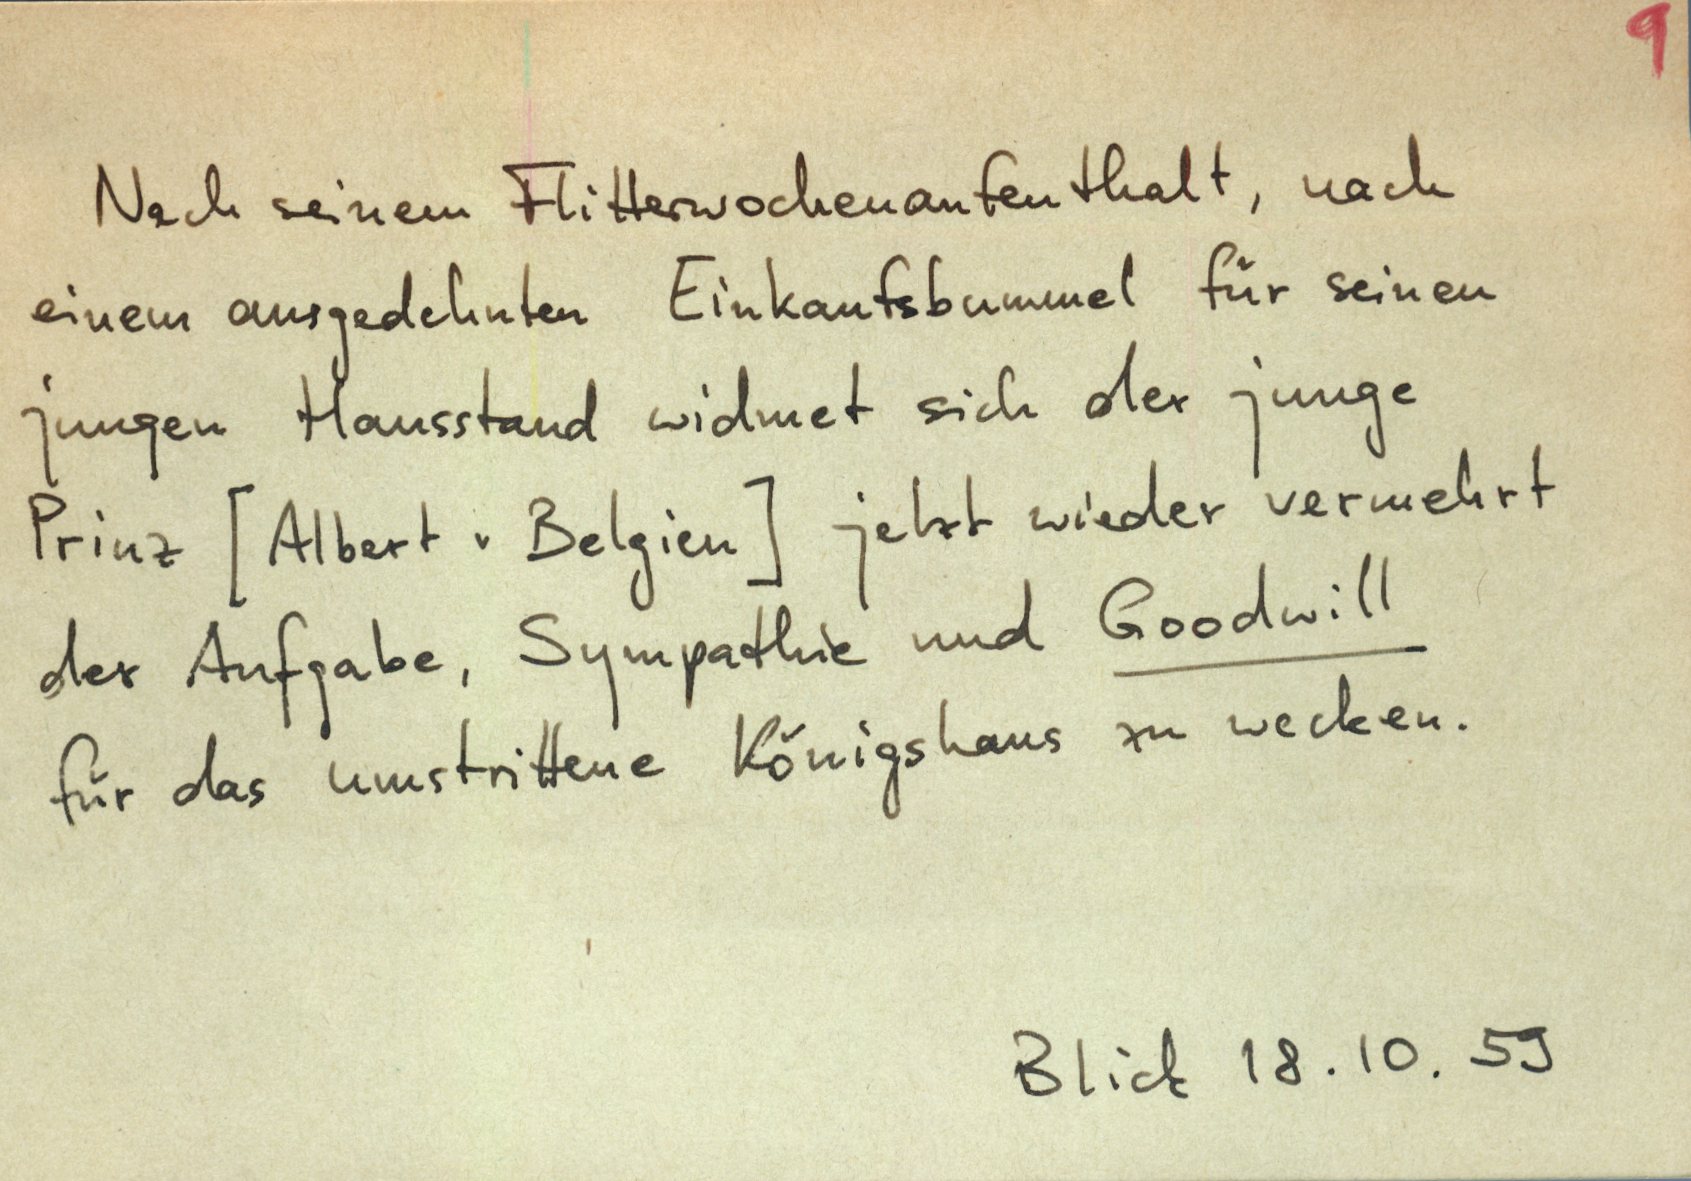 9
Nach seinem Flitterwochenaufenthalt, nach
einem ausgedehnten Einkaufsbummel für seinen
jungen Hausstand widmet sich der junge
Prinz [Albert v Belgien] jetzt wieder vermehrt
der Aufgabe, Sympathie und Goodwill
für das umstrittene Königshaus zu wecken.
Blick 18.10.59